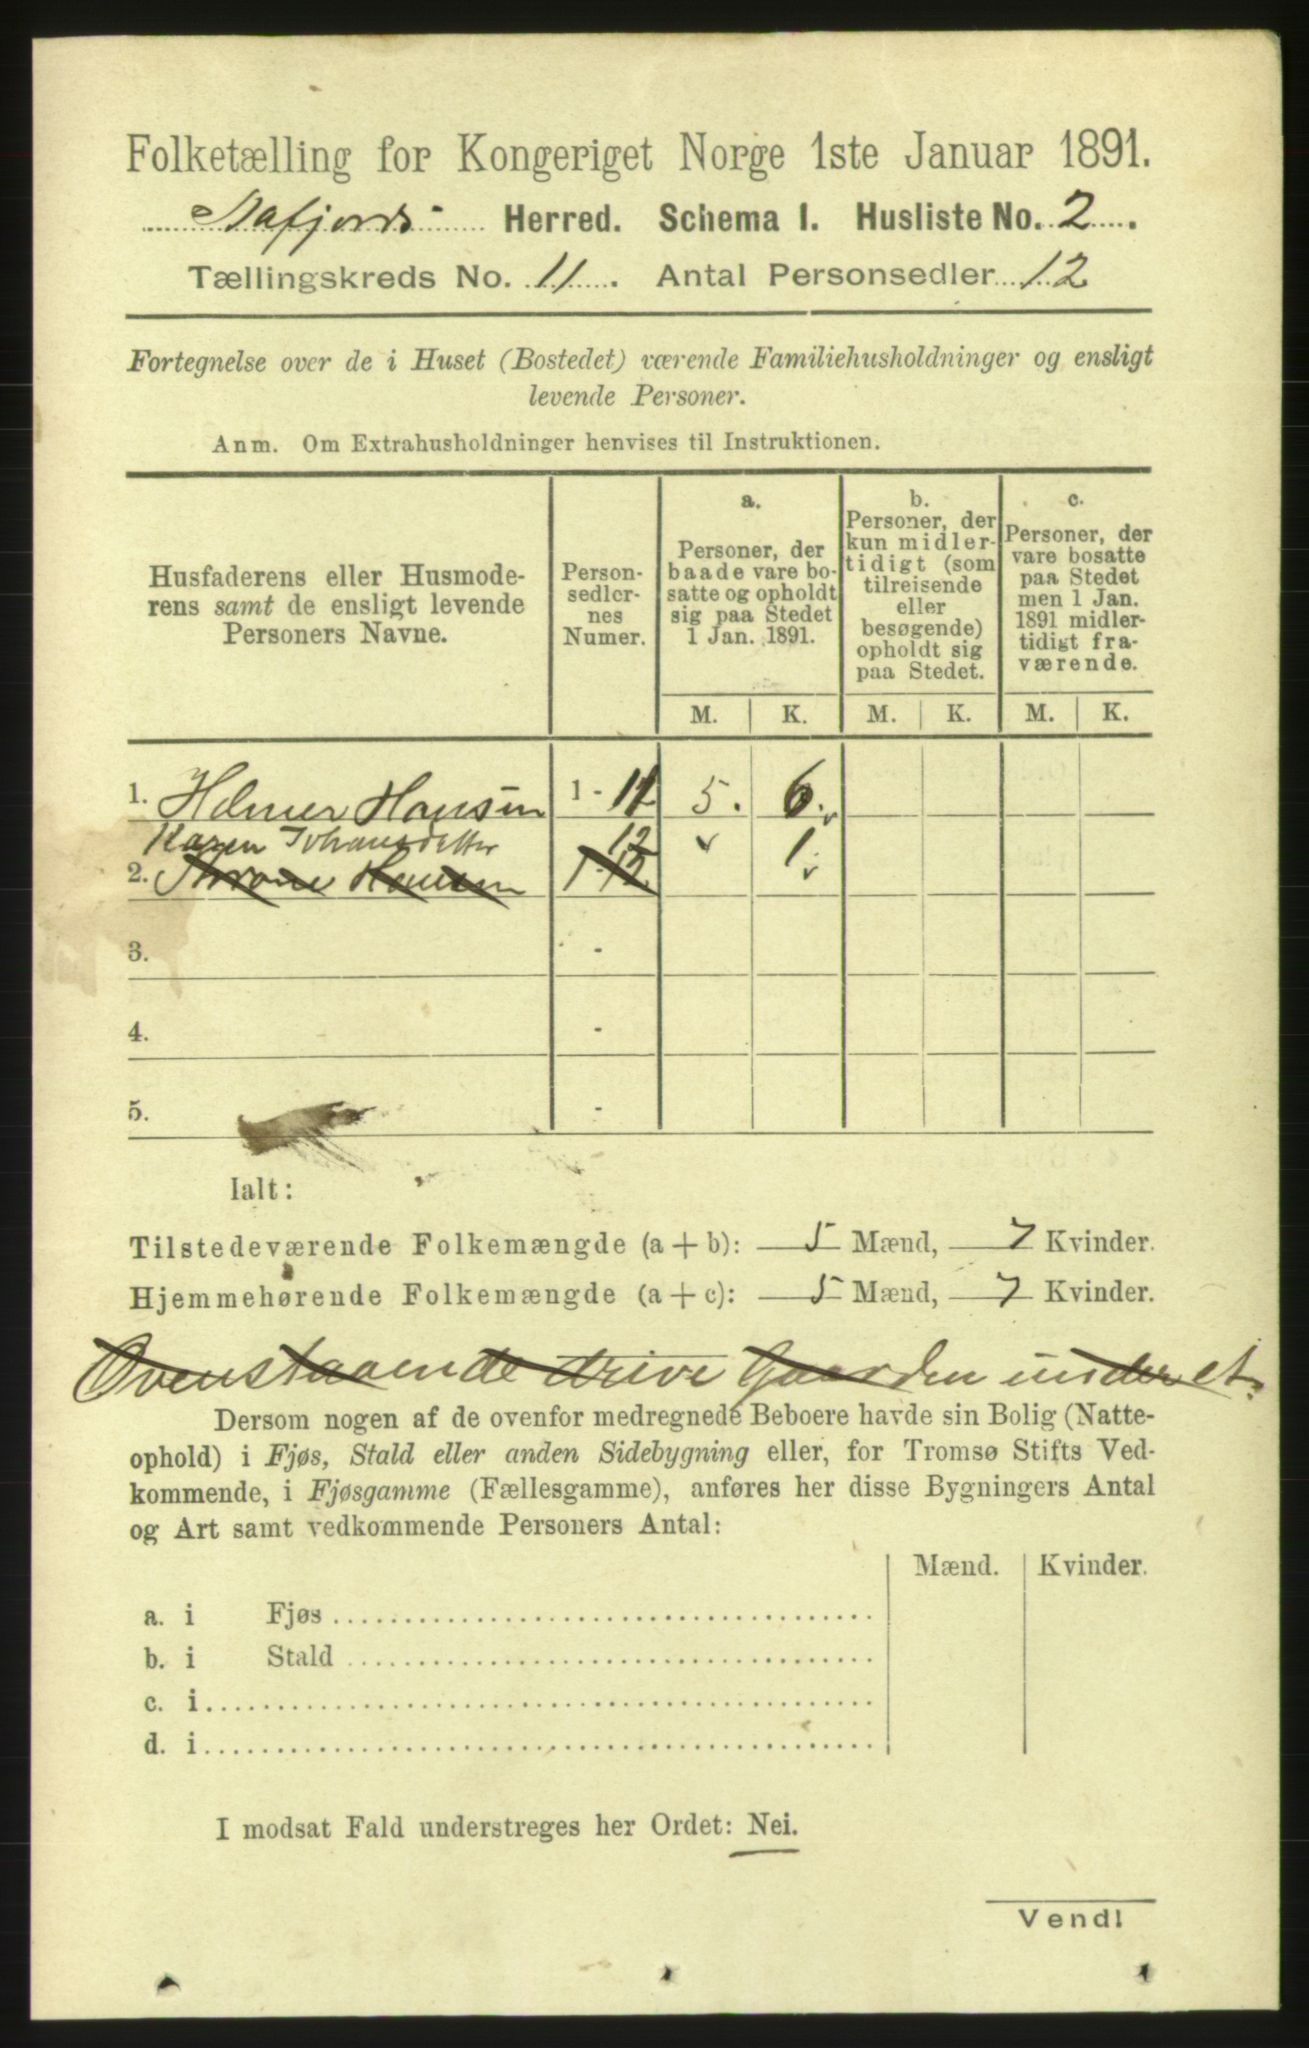 Folketælling for Kongeriget Norge 1ste Januar 1891.
Herred. Schema 1. Husliste No. 2.
Tællingskreds No. 11. Antal Personsedler 12
Fortegnelse over de i Huset (Bostedet) værende Familiehusholdninger og ensligt
levende Personer.
Anm. Om Extrahusholdninger henvises til Instruktionen.
Husfaderens eller Husmode-
rens samt de ensligt levende
Personers Navne.
Person-
sedler-
nes
Numer.
a.
Personer, der
baade vare bo-
satte og opholdt
sig paa Stedet
1 Jan. 1891.
b.
Personer, der
kun midler-
tidigt (som
tilreisende
eller
besøgende)
opholdt sig
paa Stedet.
c.
Personer, der
vare bosatte
paa Stedet
men 1 Jan.
1891 midler-
tidigt fra-
værende.
M. K. M. K. M. K.
1. Helmer Hansen 1 - 11 5. 6.
Karen Johansdatter 12 1
2. Hansen 1-12.
3. -
4. -
5. -
Ialt:
Tilstedeværende Folkemængde (a + b): 5 Mænd, 7 Kvinder.
Hjemmehørende Folkemængde (a + c): 5 Mænd, 7 Kvinder.
Ovenstaaende drive Gaarden under et.
Dersom nogen af de ovenfor medregnede Beboere havde sin Bolig (Natte-
ophold) i Fjøs, Stald eller anden Sidebygning eller, for Tromsø Stifts Ved-
kommende, i Fjøsgamme (Fællesgamme), anføres her disse Bygningers Antal
og Art samt vedkommende Personers Antal:
Mænd. Kvinder.
a. i Fjøs
b. i Stald
c. i
d. i
I modsat Fald understreges her Ordet: Nei.
Vend!